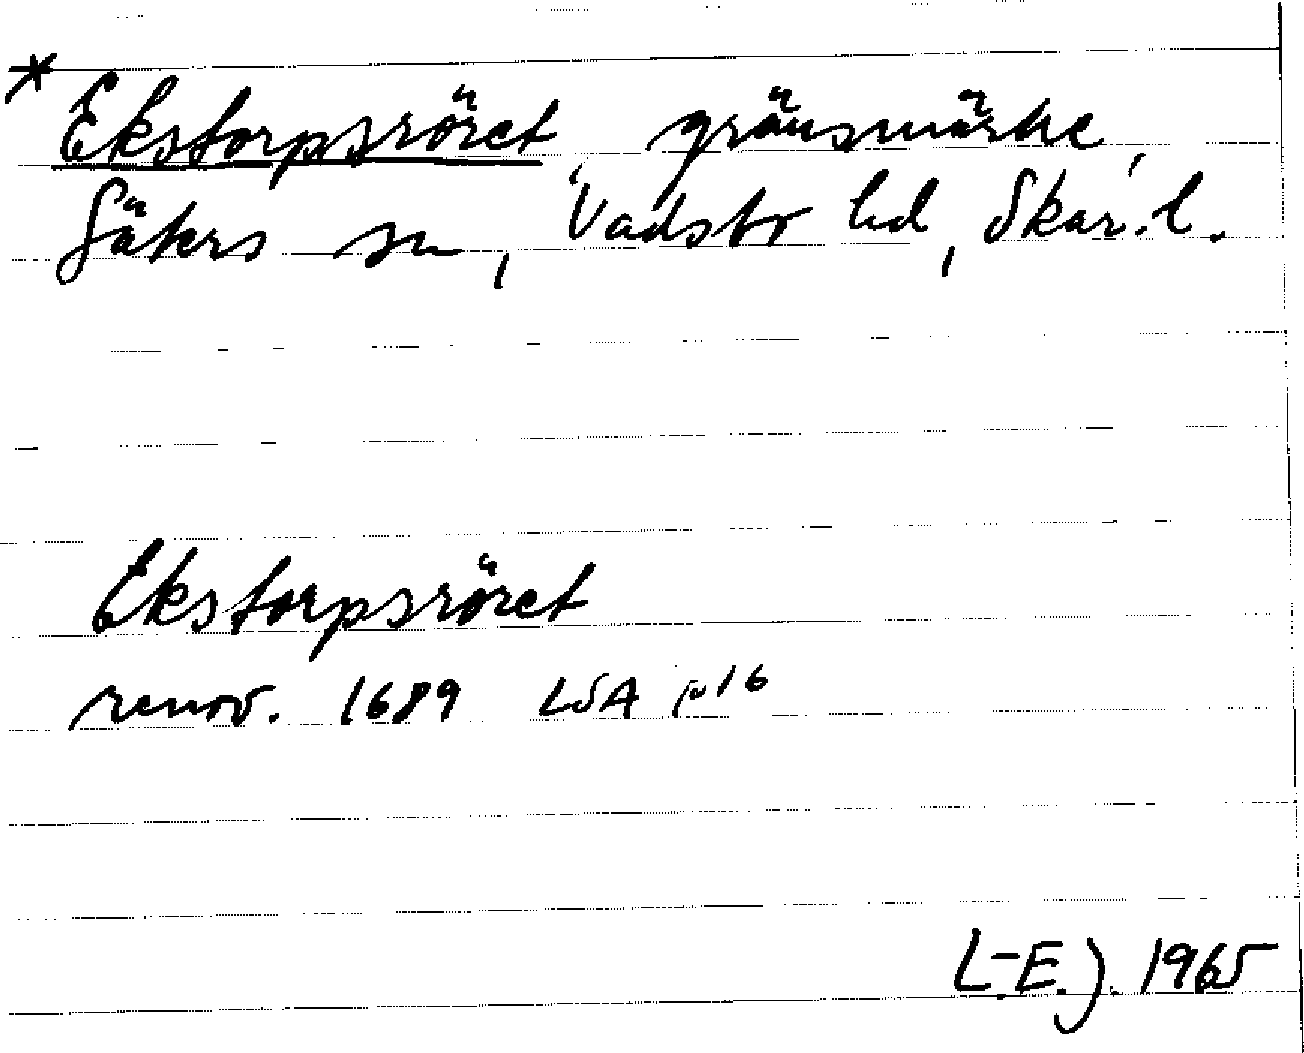 * Ekstorpsröret gränsmärke,
Säters sn, Vadsbr hd, Skar.l.
Ekstorpsröret
renov. 1689 LSA p 16
L-E.J. 1965